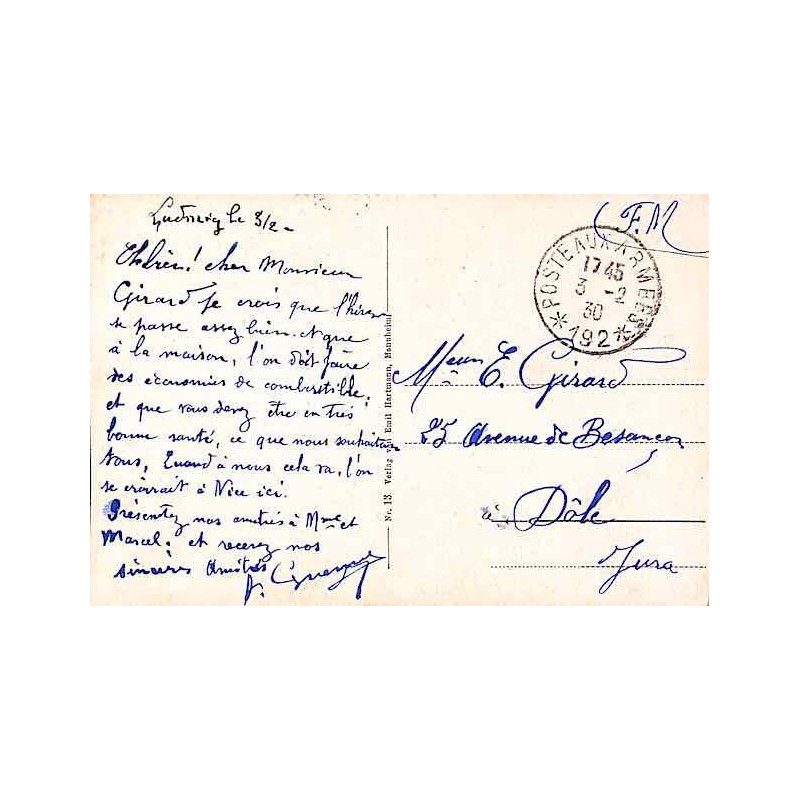 le 3/2 -
cher Monsieur
Girard je crois que l'hiver
se passe assez bien. Et que
à la maison, l'on doit faire
des économies de combustible.
et que vous devez être en très
bonne santé, ce que nous souhaitons
tous, Quand à nous cela va, l'on
se croirait à Nice ici.
Présentez nos amitiés à Mme et
Marcel. et recevez nos
sincères Amitiés
Nr. 13. Verlag von Emil Hartmann, Mannheim
F.M
*POSTE AUX ARMEES*
1745
3 -2
30
192
Mr E. Girard
25 Avenue de Besançon
à Dôle
Jura